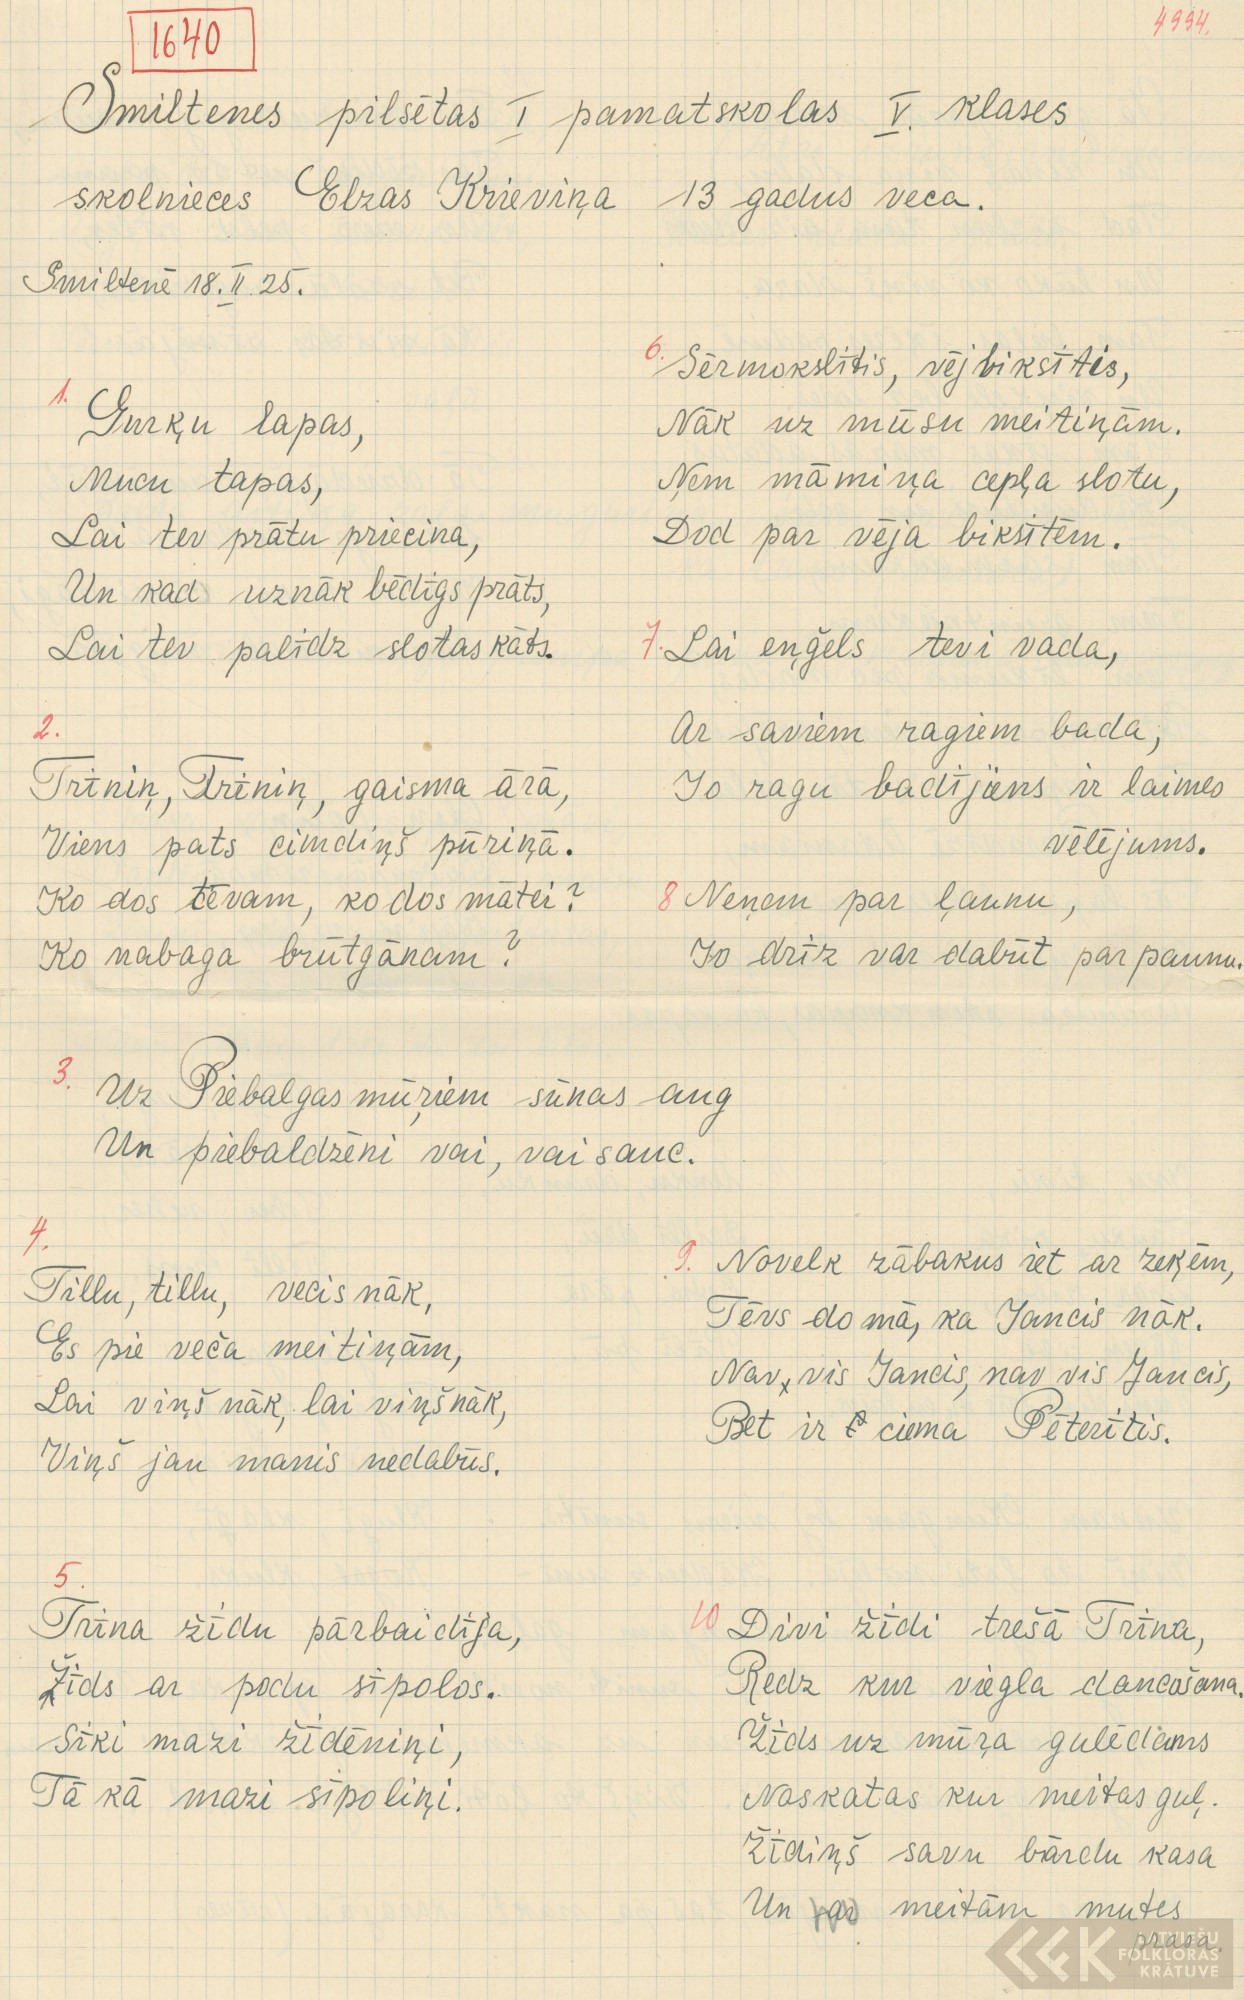 1640
4994.
Smiltenes pilsētas I pamatskolas V. klases
skolnieces Elzas Krieviņa 13 gadus veca.
Smiltenē 18. II 25.
1.
Gurķu lapas,
Mucu tapas,
Lai tev prātu priecina,
Un kad uznāk bēdīgs prāts,
Lai tev palīdz slotas kāts.
2.
Trīniņ, Trīniņ, gaisma ārā,
Viens pats cimdiņš pūriņā.
Ko dos tēvam, ko dos mātei?
Ko nabaga brūtgānam?
3.
Uz Piebalgas mūŗiem sūnas aug
Un piebaldzēni vai, vai sauc.
4.
Tillu, tillu, vecis nāk,
Es pie veča meitiņām,
Lai viņš nāk, lai viņš nāk,
Viņš jau manis nedabūs.
5.
Trīna žīdu pārbaidīja,
Žīds ar podu sīpolos.
Sīki mazi žīdēniņi,
Tā kā mazi sīpoliņi.
6. Sērmokslītis, vējbiksītis,
Nāk uz mūsu meitiņām.
Ņem māmiņa cepļa slotu,
Dod par vēja biksītēm.
7. Lai eņģels tevi vada,
Ar saviem ragiem bada,
Jo ragu badījums ir laimes
vēlējums.
8 Neņem par ļaunu,
Jo drīz var dabūt par paunu.
9. Novelk zābakus iet ar zeķēm,
Tēvs domā, ka Jancis nāk.
Nav vis Jancis, nav vis Jancis,
Bet ir ciema Pēterītis.
10 Divi žīdi trešā Trīna,
Redz kur viegla dancošana.
Žīds uz mūŗa gulēdams
Noskatas kur meitas guļ.
Žīdiņš savu bārdu kasa
Un ar meitām mutes
prasa.
LATVIEŠU
FOLKLORAS
KRĀTUVE